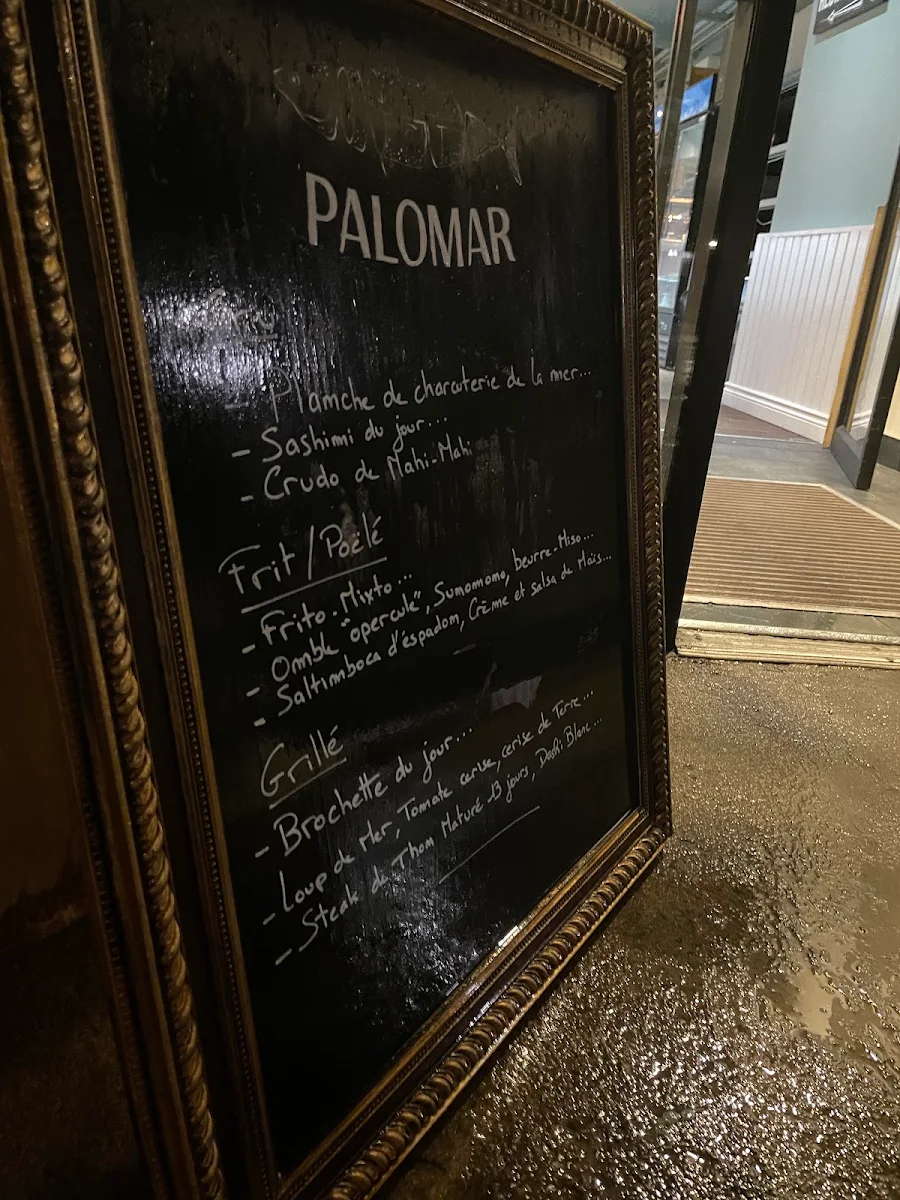 PALOMAR
- Planche de charcuterie de la mer...
- Sashimi du jour...
- Crudo de Mahi-Mahi
Frit/Poêlé
- Frito-Mixto...
- Omble "operculé", Sunomono, beurre-Miso...
- Saltimboca d'éspadon, Crème et salsa de Maïs...
Grillé
- Brochette du jour...
- Loup de Mer, Tomate cerise, cerise de Terre...
- Steak de Thon Maturé 13 jours, Dashi Blanc...